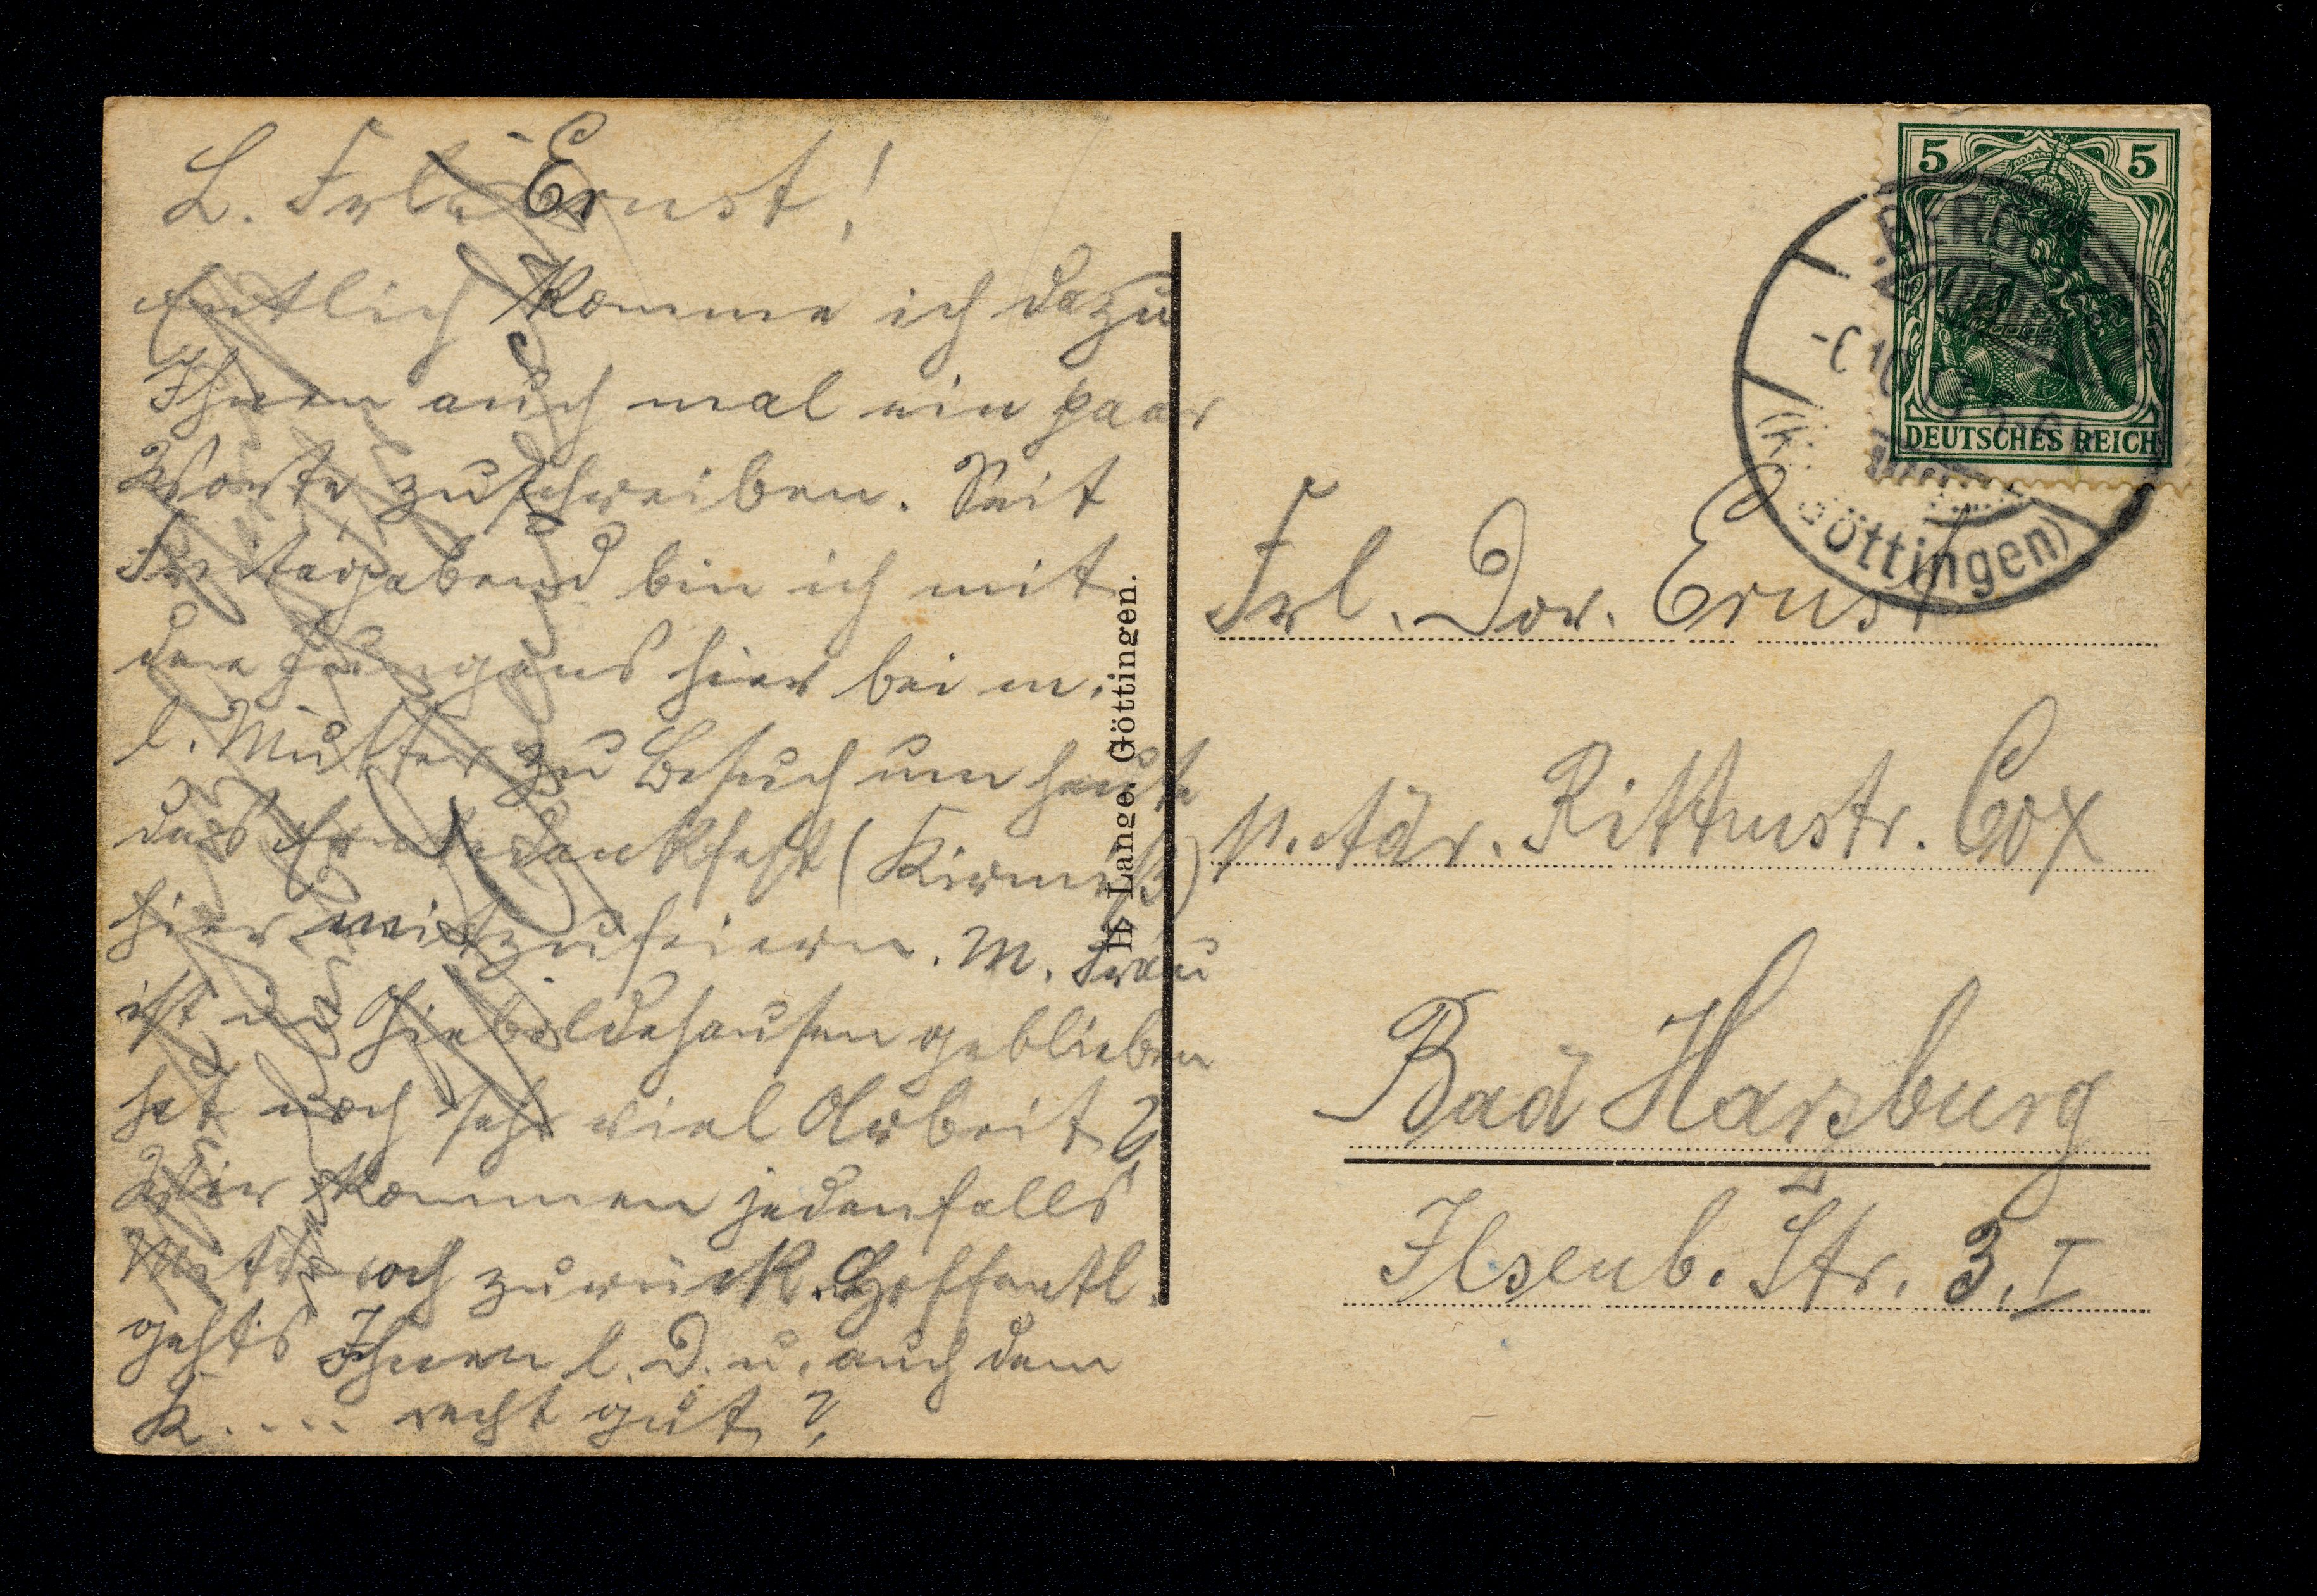 L. Frl. Ernst!
Entlich komme ich dazu
Ihnen auch mal ein paar
Worte zu schreiben. Seit
Freitagabend bin ich mit
den Jungens hier bei m.
l. Mutter zu Besuch um heute
das Erntedankfest (Kirmeß)
hier mitzufeiern. M. Frau
ist in Gieboldehausen geblieben
hat noch sehr viel Arbeit.
Wir kommen jedenfalls
Mittwoch zurück. Hoffentl.
gehts Ihnen l. D. u. auch dem
K.... recht gut?
H. Lange, Göttingen.
5 5
DEUTSCHES REICH
Göttingen)
Frl. Dor. Ernst
p. Adr. Rittmstr. Cox
Bad Harzburg
Ilsenb. Str. 3. I